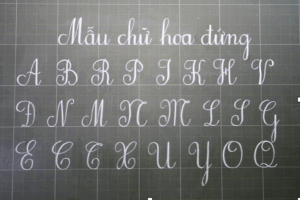 Mẫu chữ hoa đứng
A B R P I K H V
D N M N M L S G
E C T X U Y O Q